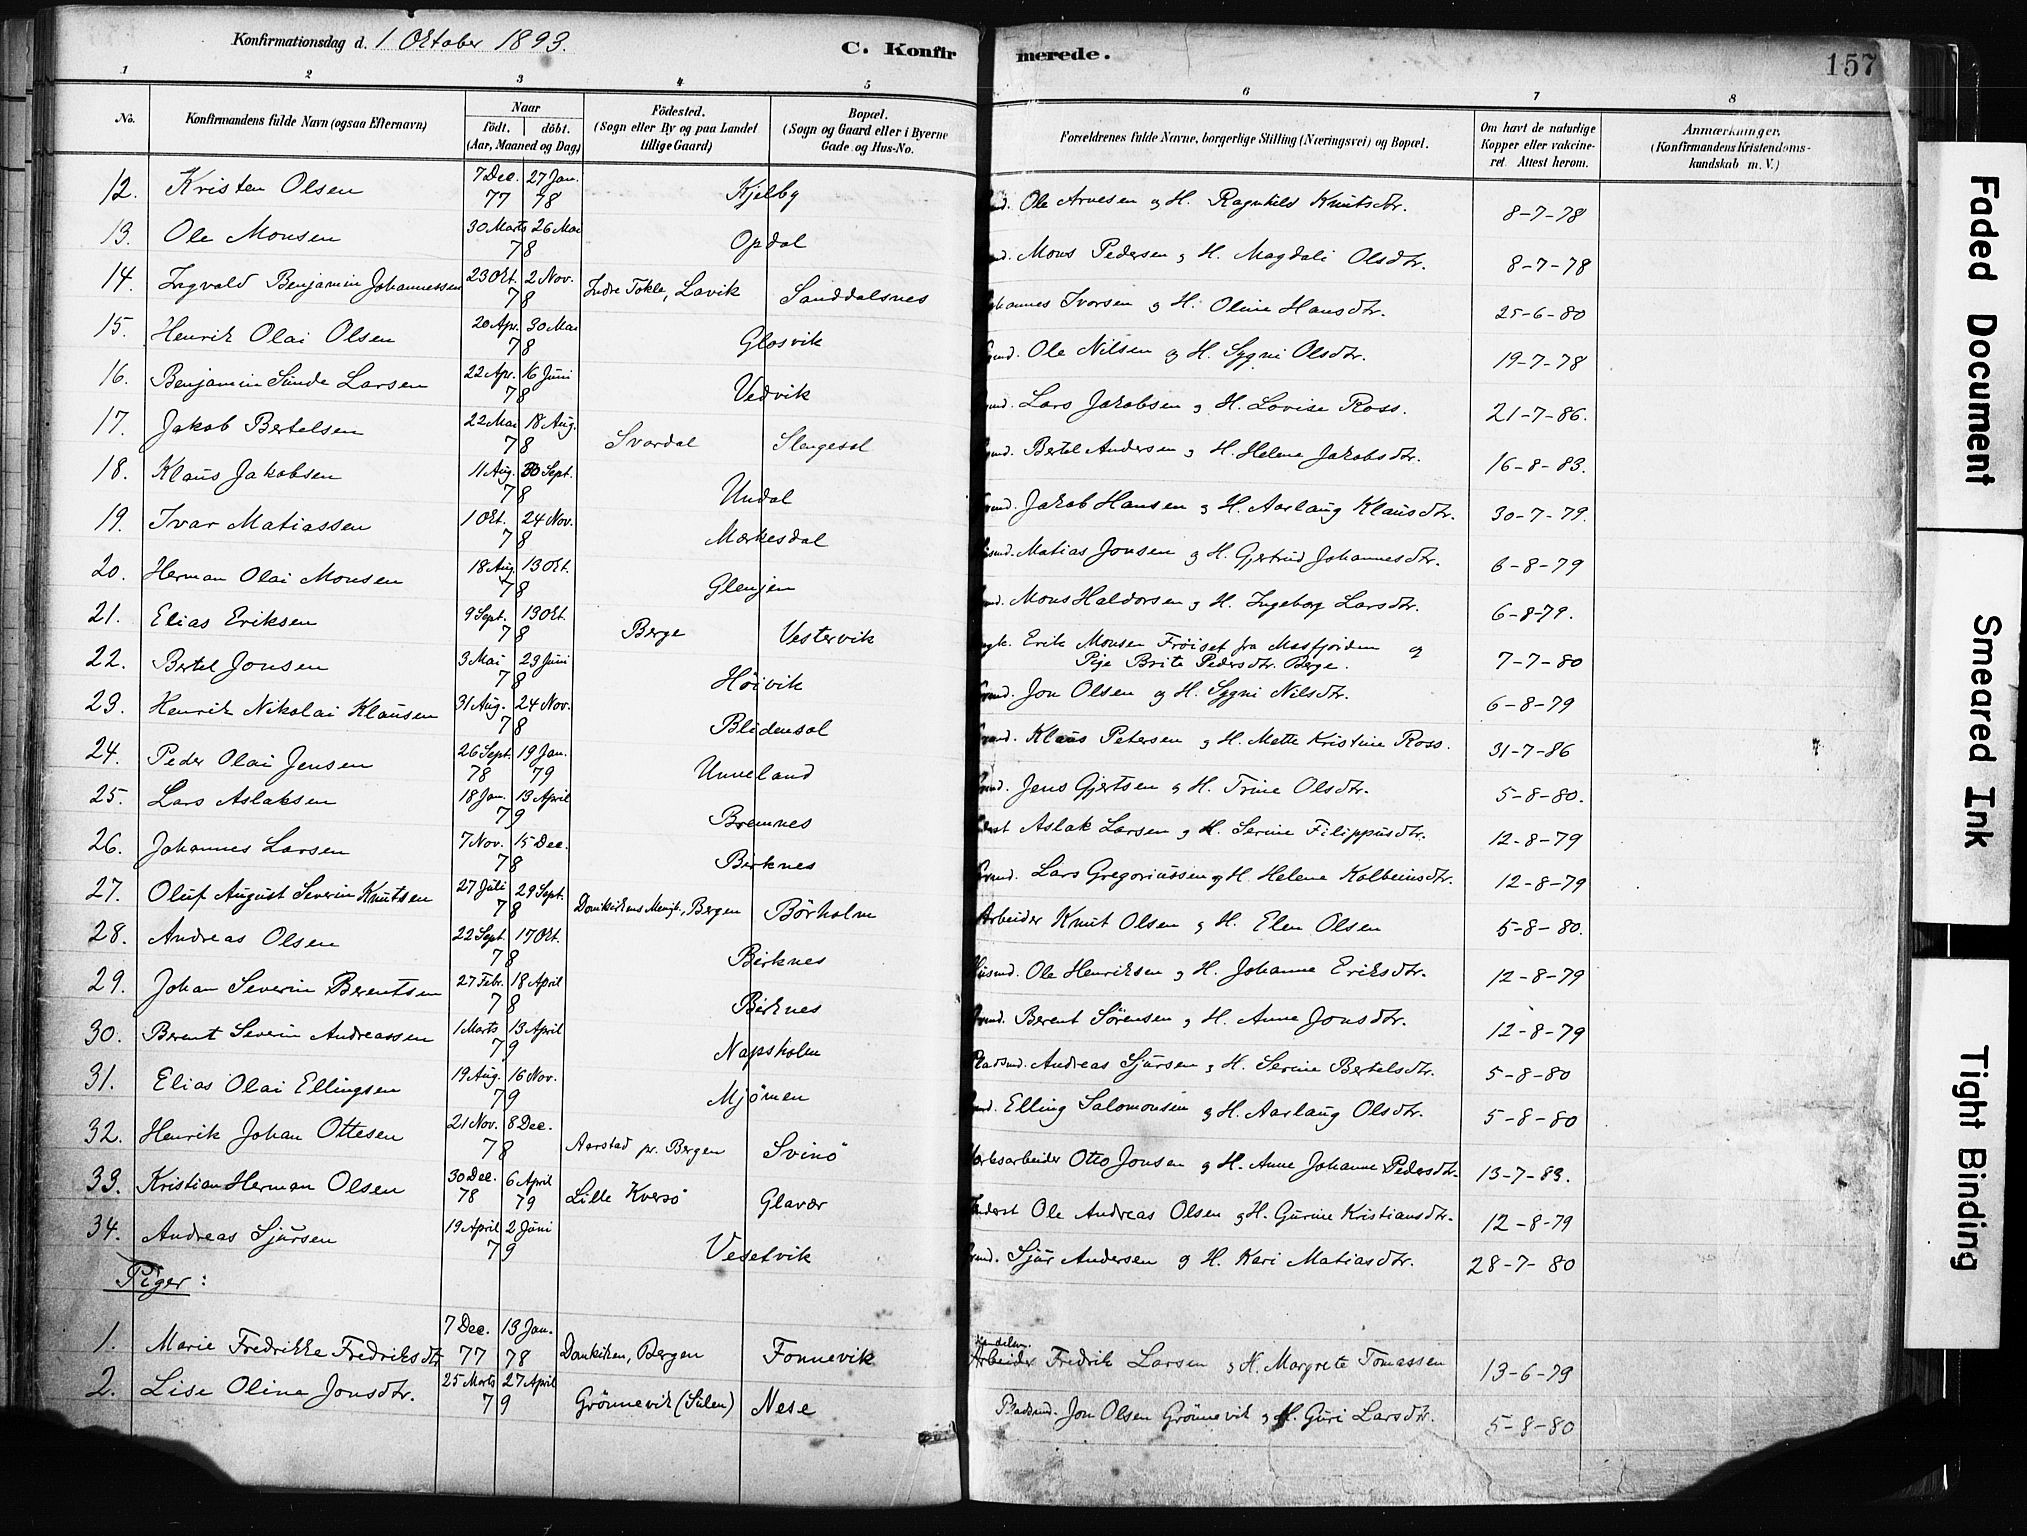 Konfirmationsdag d. 1 Oktober 1893.
C. Konfirmerede.
157
1 2 3 4 5 6 7 8
No.
Konfirmandens fulde Navn (ogsaa Efternavn)
Naar
födt. | döbt.
(Aar, Maaned og Dag)
Födested.
(Sogn eller By og paa Landet
tillige Gaard)
Bopæl.
(Sogn og Gaard eller i Byerne
Gade og Hus-No.
Forældrenes fulde Navne, borgerlige Stilling (Næringsvei) og Bopæl.
Om havt de naturlige
Kopper eller vakcine-
ret. Attest herom.
Anmærkninger.
(Konfirmandens Kristendoms-
kundskab m. V.)
12. Kristen Olsen 7 Dec. 77 27 Jan. 78 Kjelby Ole Arnesen og H. Ragnhild Knutsdtr. 8-7-78
13. Ole Monsen 30 Marts 26 Mai 78 Opdal Mons Pedersen og H. Magdali Olsdtr. 8-7-78
14. Ingvald Benjamin Johannessen 23 Okt. 2 Nov. 78 Indre Takle, Lavik Sanddalsnes Johannes Ivorsen og H. Oline Hansdtr. 25-6-80
15. Henrik Olai Olsen 20 Apr. 30 Mai 78 Glosvik Ole Nilsen og H. Sygni Olsdtr. 19-7-78
16. Benjamin Sünde Larsen 22 Apr. 16 Juni 78 Vedvik Lars Jakobsen og H. Lovise Ross. 21-7-86.
17. Jakob Bertelsen 22 Mai 18 Aug. 78 Svardal Slengesol Bertel Andersen og H. Helene Jakobsdtr. 16-8-83.
18. Klaus Jakobsen 11 Aug. 30 Sept. 78 Undal Jakob Hansen og H. Aarlaug Klausdtr. 30-7-79.
19. Ivar Matiassen 1 Okt. 24 Nov. 78 Mærkesdal Matias Jonsen og H. Gjertrud Johannesdtr. 6-8-79
20. Herman Olai Monsen 18 Aug. 13 Okt. 78 Glenjen Mons Haldorsen og H. Ingeborg Larsdtr. 6-8-79.
21. Elias Eriksen 9 Sept. 13 Okt. 78 Berge Vestervik Erik Monsen Frøiset fra Masfjorden og
Pige Brite Pedersdtr. Berge. 7-7-80
22. Bertel Jonsen 3 Mai 23 Juni 78 Höivik Jon Olsen og H. Sygni Nilsdtr. 6-8-79
23. Henrik Nikolai Klausen 31 Aug. 24 Nov. 78 Blidensol Klaus Petersen og H. Mette Kristine Ross. 31-7-86
24. Peder Olai Jensen 26 Sept. 78 19 Jan. 79 Unneland Jens Gjertsen og H. Trine Olsdtr. 5-8-80.
25. Lars Aslaksen 18 Jan. 13 April 79 Bremnes Aslak Larsen og H. Serine Filippusdtr. 12-8-79
26. Johannes Larsen 7 Nov. 15 Dec. 78 Birknes Lars Gregoriussen og H. Helene Kolbeinsdtr. 12-8-79
27. Oluf August Severin Knutsen 27 Juli 29 Sept. 78 Domkirkens Menigh., Bergen Börholm Arbeider Knut Olsen og H. Elen Olsen 5-8-80.
28. Andreas Olsen 22 Sept. 17 Okt. 78 Birknes Husmd. Ole Henriksen og H. Johanne Eriksdtr. 12-8-79
29. Johan Severin Berentsen 27 Febr. 18 April 78 Birknes Berent Sörensen og H. Anne Jonsdtr. 12-8-79
30. Berent Severin Andreassen 1 Marts 13 April 79 Napsholm Pladsmd. Andreas Sjursen og H. Serine Bertelsdtr. 5-8-80
31. Elias Olai Ellingsen 19 Aug. 16 Nov. 79 Mjömen Elling Salomonsen og H. Aarlaug Olsdtr. 5-8-80
32. Henrik Johan Ottesen 21 Nov. 8 Dec. 78 Aarstad pr. Bergen Svinö Otto Jonsen og H. Anne Johanne Pedersdtr. 13-7-83.
33. Kristian Herman Olsen 30 Dec. 78 6 April 79 Lille Kversö Glavær Ole Andreas Olsen og H. Gurine Kristiansdtr. 12-8-79
34. Andreas Sjursen 19 April 2 Juni 79 Vesetvik Sjur Andersen og H. Kari Matiasdtr. 28-7-80
Piger:
1. Marie Fredrikke Fredriksdtr 7 Dec. 77 13 Jan. 78 Domkirken, Bergen Fonnevik Arbeider Fredrik Larsen og H. Margrete Tomassen 13-6-79
2. Lise Oline Jonsdtr. 25 Marts 27 April 79 Grönnevik (Sulen) Nese Pladsmd. Jon Olsen Grönnevik og H. Guri Larsdtr. 5-8-80
Faded Document
Smeared Ink
Tight Binding